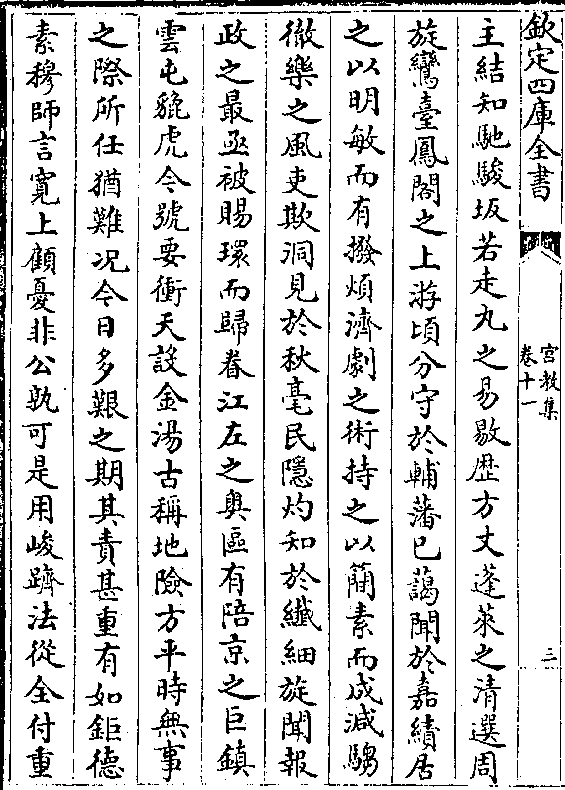 欽定四庫全書
宮教集
卷十一
三
主結知馳駿坂若走丸之易敭歴方丈蓬萊之清選周
旋鸞臺鳳閣之上游頃分守於輔藩已藹聞於嘉績居
之以明敏而有撥煩濟劇之術持之以簡素而成減騶
徹樂之風吏欺洞見於秋毫民隱灼知於纖細旋聞報
政之最亟被賜環而歸眷江左之輿區有陪京之巨鎮
雲屯貔虎令號要衝天設金湯古稱地險方平時無事
之際所任猶難况今日多艱之期其責甚重有如鉅德
素穆師言寛上顧憂非公孰可是用峻躋法從全付重